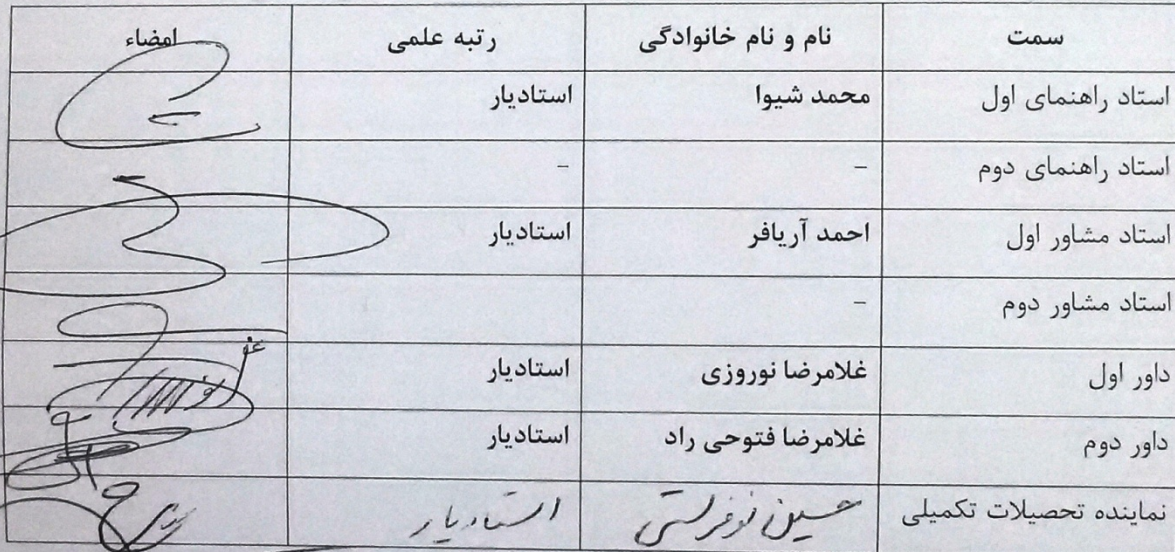 سمت نام و نام خانوادگی رتبه علمی امضاء
استاد راهنمای اول محمد شیوا استادیار
استاد راهنمای دوم – –
استاد مشاور اول احمد آریافر استادیار
استاد مشاور دوم –
داور اول غلامرضا نوروزی استادیار
داور دوم غلامرضا فتوحی راد استادیار
نماینده تحصیلات تکمیلی حسین استادیار